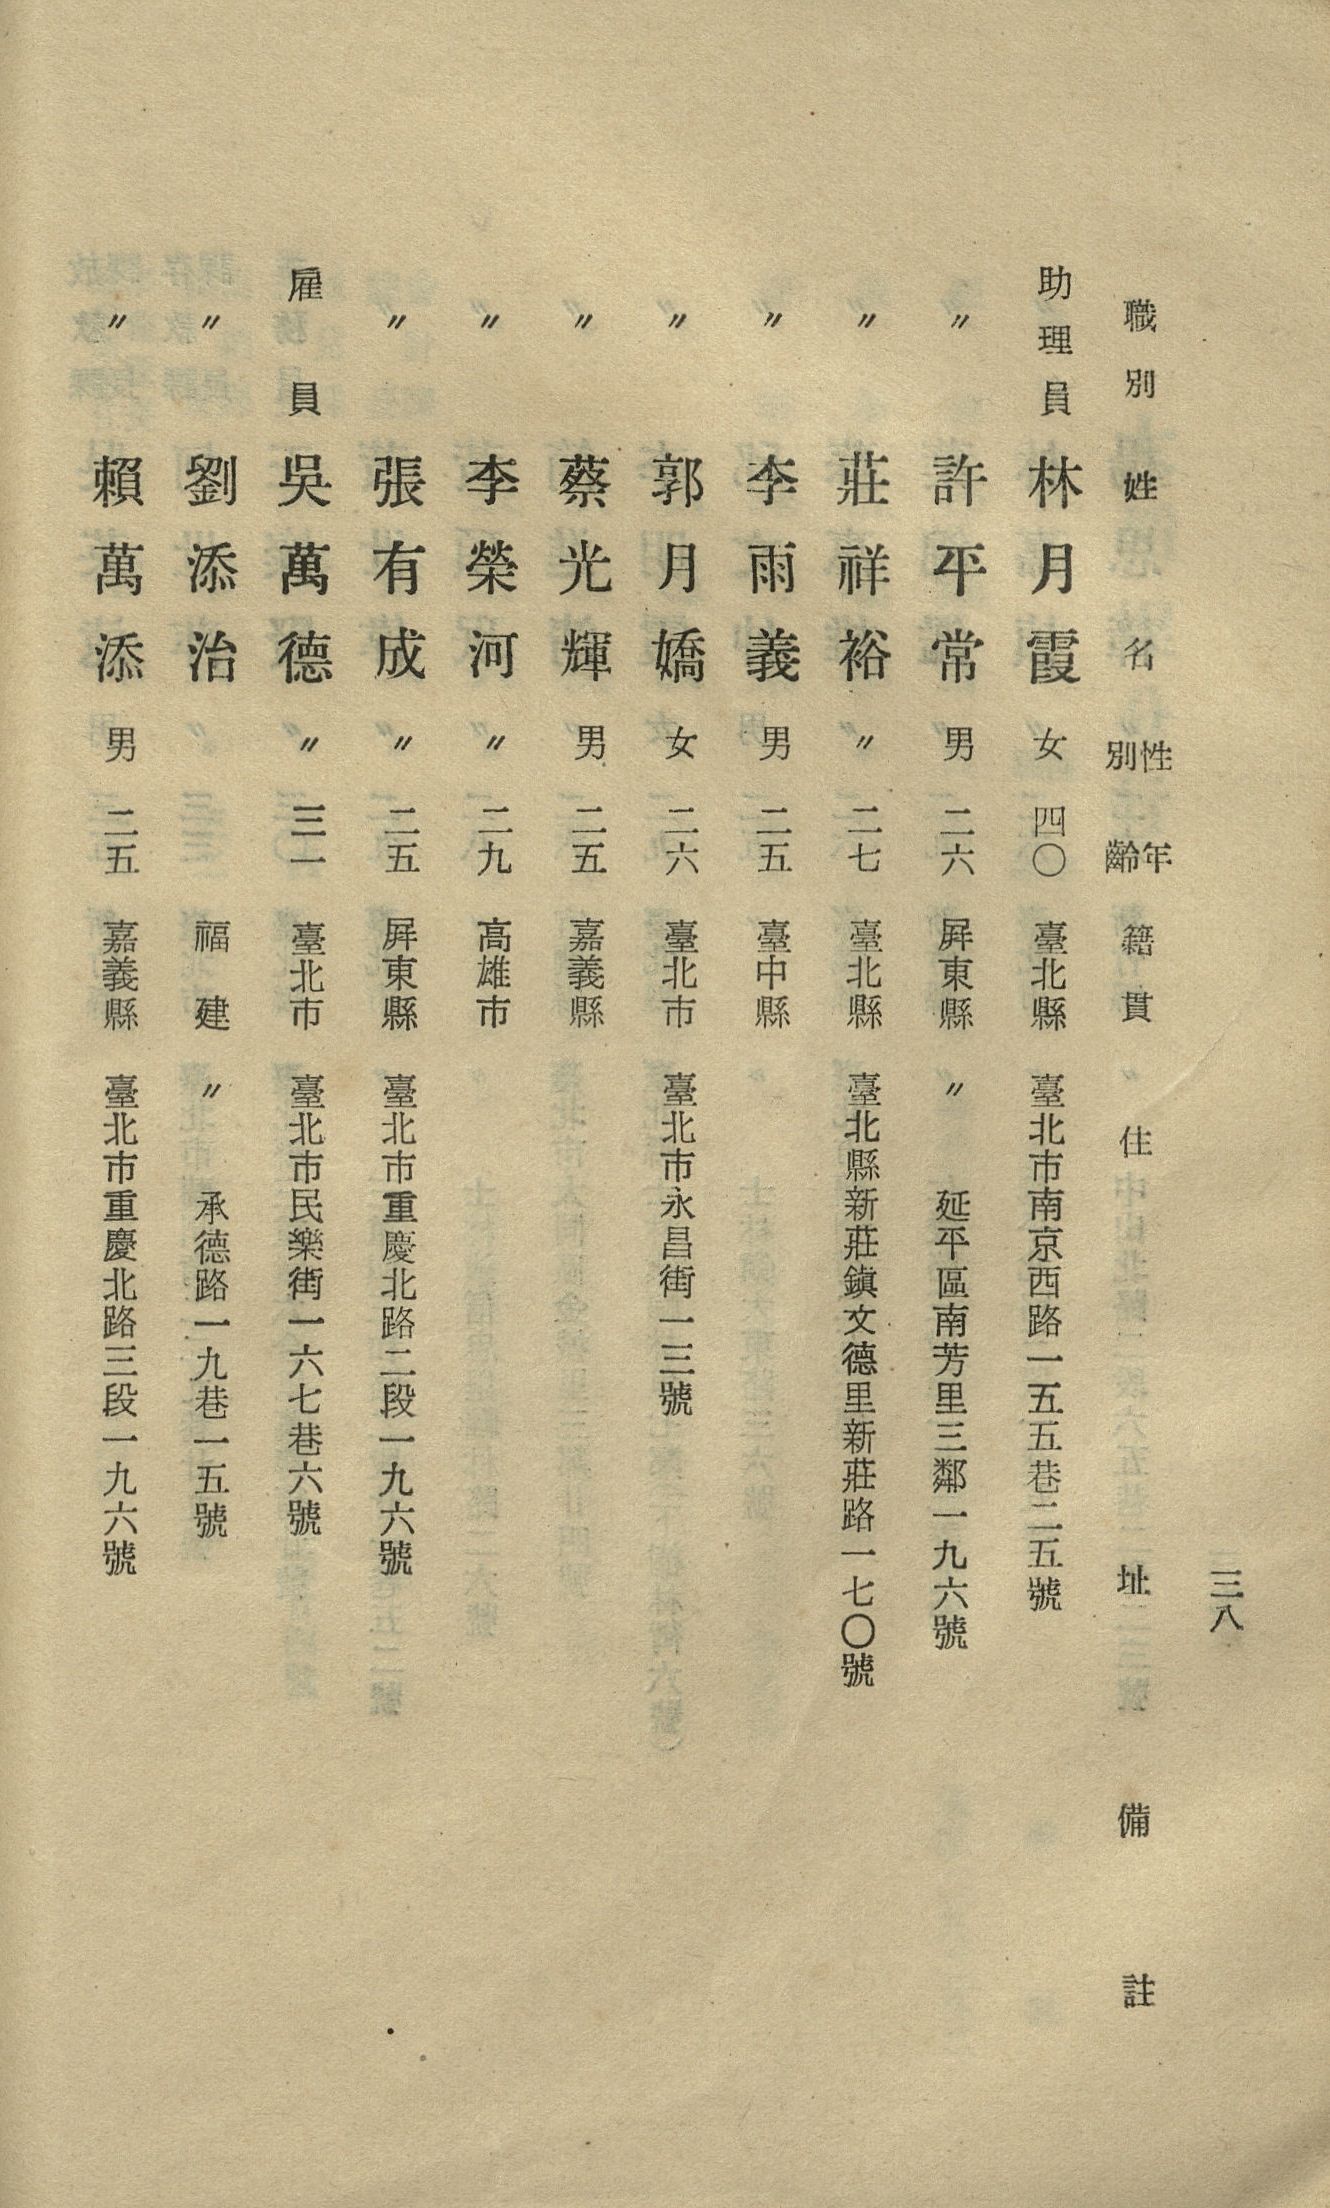 三八
職別 姓名 性別 年齡 籍貫 住址 備註
助理員 林月霞 女 四〇 臺北縣 臺北市南京西路一五五巷二五號
〃 許平常 男 二六 屏東縣 〃 延平區南芳里三鄰一九六號
〃 莊祥裕 〃 二七 臺北縣 臺北縣新莊鎭文德里新莊路一七〇號
〃 李雨義 男 二五 臺中縣
〃 郭月嬌 女 二六 臺北市 臺北市永昌街一三號
〃 蔡光輝 男 二五 嘉義縣
〃 李榮河 〃 二九 高雄市
〃 張有成 〃 二五 屏東縣 臺北市重慶北路二段一九六號
雇員 吳萬德 〃 三一 臺北市 臺北市民樂街一六七巷六號
〃 劉添治 福建 〃 承德路一九巷一五號
〃 賴萬添 男 二五 嘉義縣 臺北市重慶北路三段一九六號